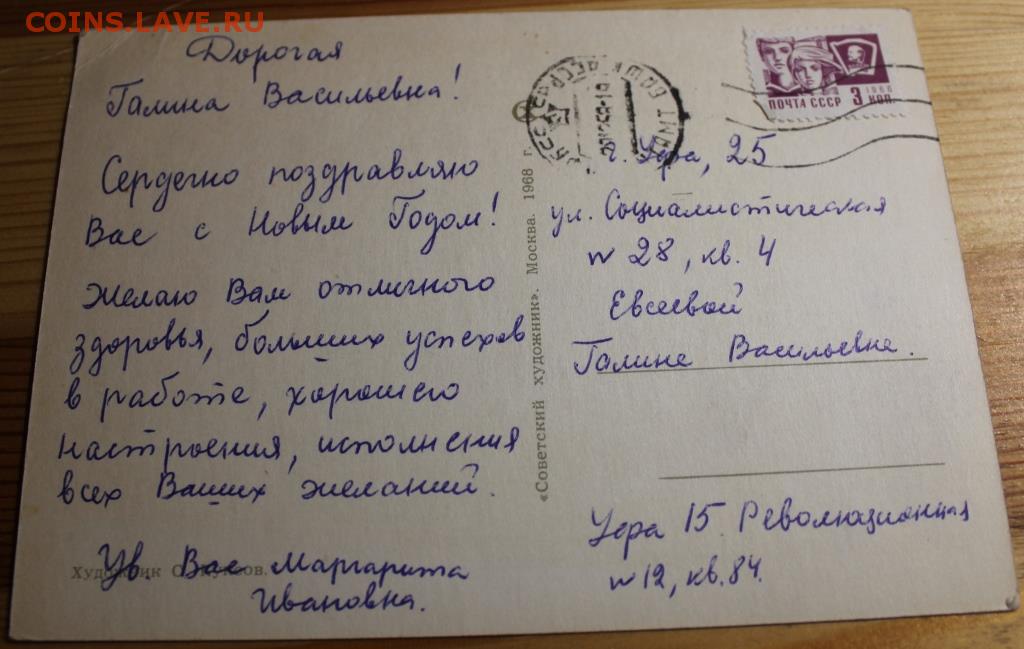 COINS.LAVE.RU
Дорогая
Галина Васильевна!
Сердечно поздравляю
Вас с Новым Годом!
Желаю Вам отличного
здоровья, больших успехов
в работе, хорошего
настроения, исполнения
всех Ваших желаний.
Ув. Вас Маргарита
Ивановна.
Художник С.
«Советский художник». Москва. 1968 г.
ПОЧТА СССР 3 КОП.
1966
г. Уфа, 25
ул. Социалистическая
№ 28, кв. 4
Евсеевой
Галине Васильевне.
Уфа 15 Революционная
№ 12, кв. 84.